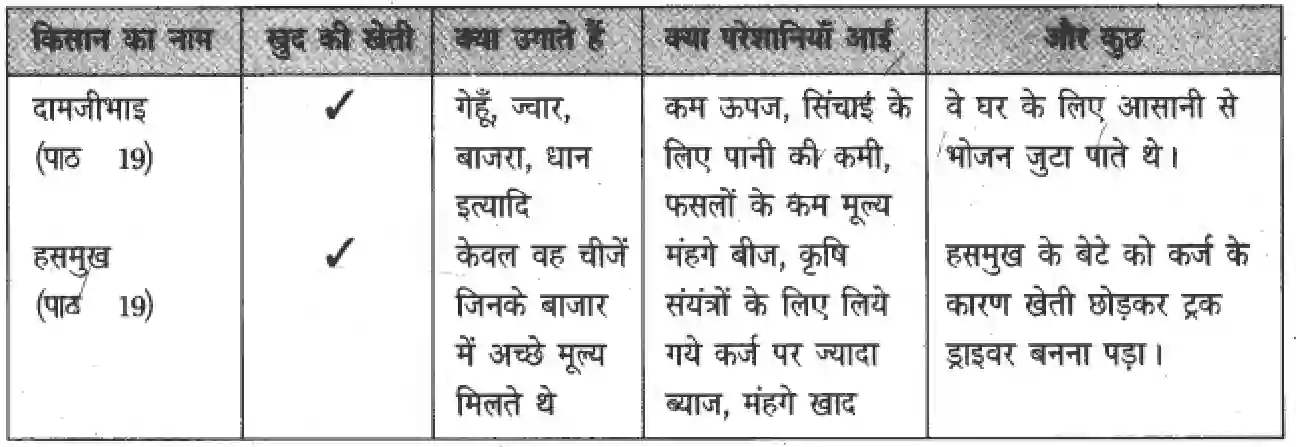 किसान का नाम खुद की खेती क्या उगाते हैं क्या परेशानियाँ आईं और कुछ
दामजीभाइ ✓ गेहूँ, ज्वार, कम ऊपज, सिंचाई के वे घर के लिए आसानी से
(पाठ 19) बाजरा, धान लिए पानी की कमी, भोजन जुटा पाते थे।
इत्यादि फसलों के कम मूल्य
हसमुख ✓ केवल वह चीजें मंहगे बीज, कृषि हसमुख के बेटे को कर्ज के
(पाठ 19) जिनके बाजार संयंत्रों के लिए लिये कारण खेती छोड़कर ट्रक
में अच्छे मूल्य गये कर्ज पर ज्यादा ड्राइवर बनना पड़ा।
मिलते थे ब्याज, मंहगे खाद